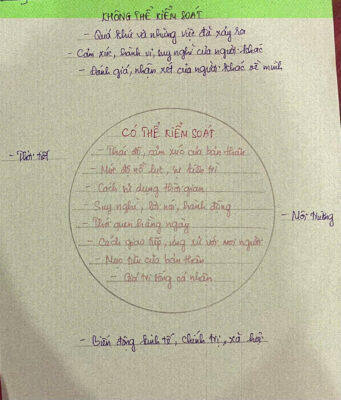 KHÔNG THỂ KIỂM SOÁT
- Quá khứ và những việc đã xảy ra
- Cảm xúc, hành vi, suy nghĩ của người khác
- Đánh giá, nhận xét của người khác về mình
CÓ THỂ KIỂM SOÁT
- Thái độ, cảm xúc của bản thân
- Thời tiết
- Mức độ nỗ lực, sự kiên trì
- Cách sử dụng thời gian
- Suy nghĩ, lời nói, hành động
- Môi trường
- Thói quen hàng ngày
- Cách giao tiếp, ứng xử với mọi người
- Mục tiêu của bản thân
- Giá trị sống cá nhân
- Biến động kinh tế, chính trị, xã hội